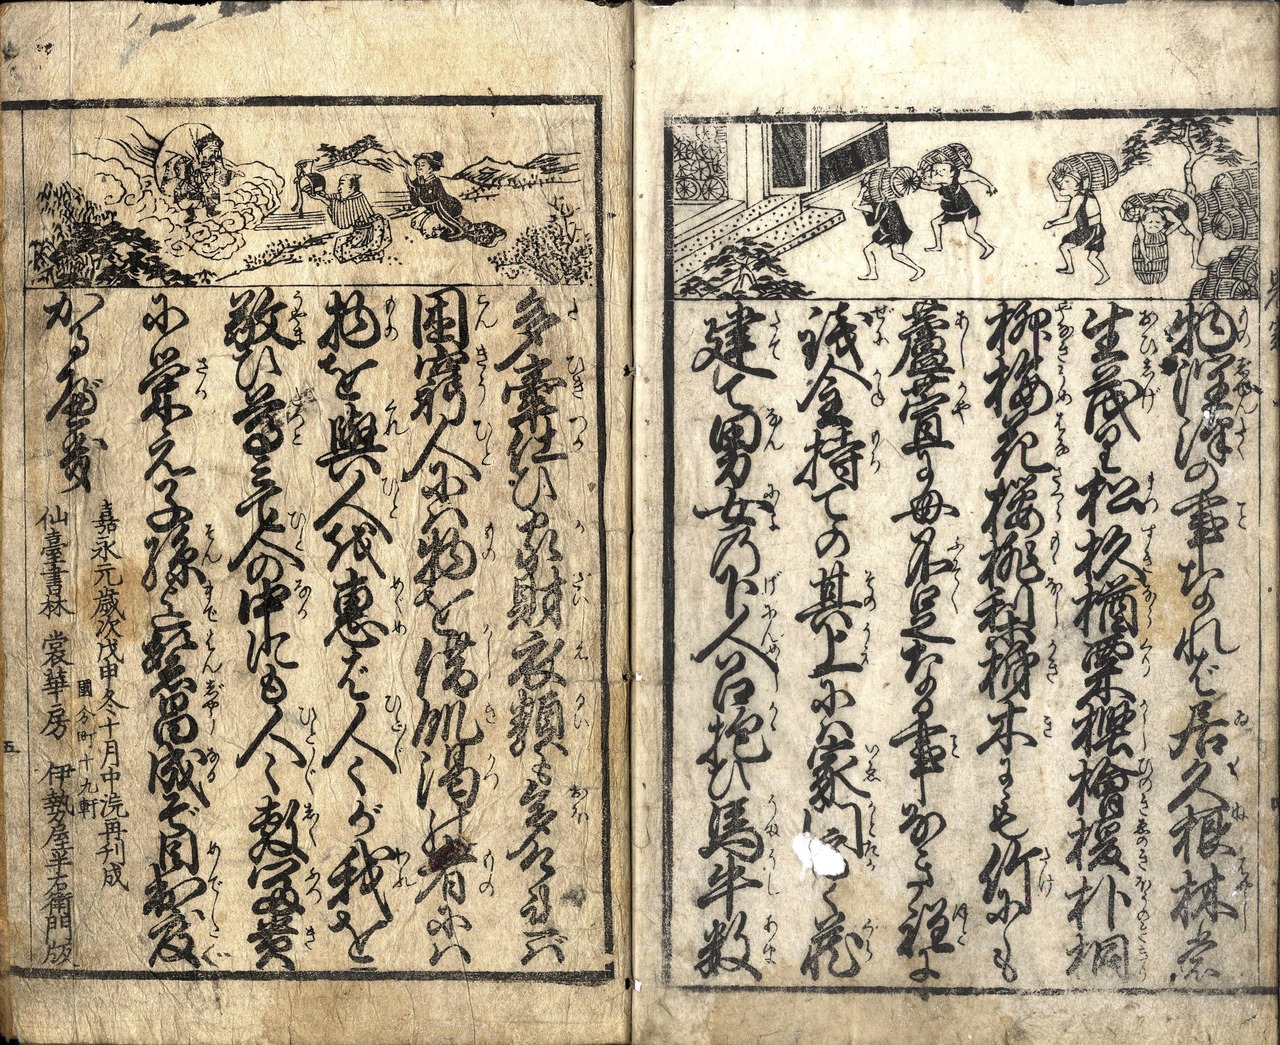 物澤沢の事なれば居久根林茂
生茂り松杉楢栗樫檜榎朴桐
柳梅花桜桃梨柿木にも竹にも
蘆萱にも不足なる事なき程に
銭金持ての其上には家門広く蔵
建て男女の下人召抱ひ馬牛数
多牽仕ひ家財衣類も多ければ
困窮人には物を借飢渇の者には
物を與へ人を恵ば人々が我を
敬ひ尊まて人の中にも人々敷富貴
に栄え子孫まで繁昌成ぞ目出度
嘉永元歳次戊申冬十月中浣再刊成
國分町十九軒
仙臺書林 裳華房 伊勢屋半右衛門版
五